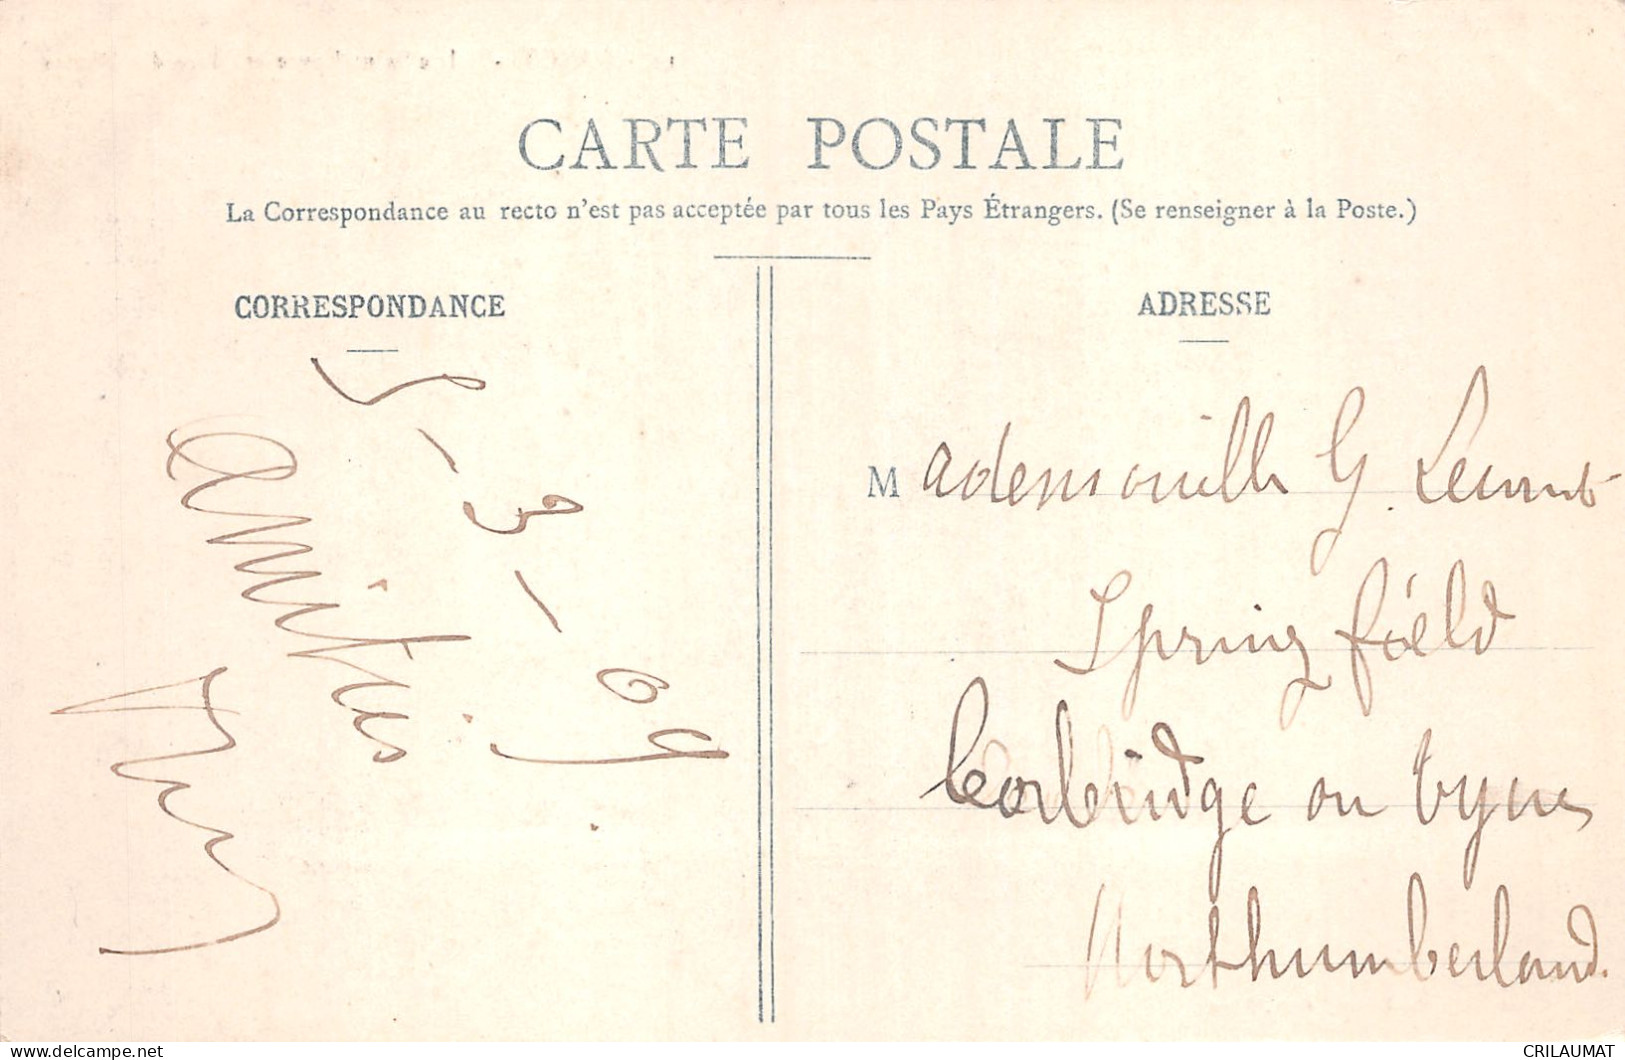 CARTE POSTALE
La Correspondance au recto n'est pas acceptée par tous les Pays Étrangers. (Se renseigner à la Poste.)
CORRESPONDANCE
5-3-09.
Amitiés
ADRESSE
Mademoiselle G.
Springfield
Corbridge on Tyne
Northumberland.
CRILAUMAT